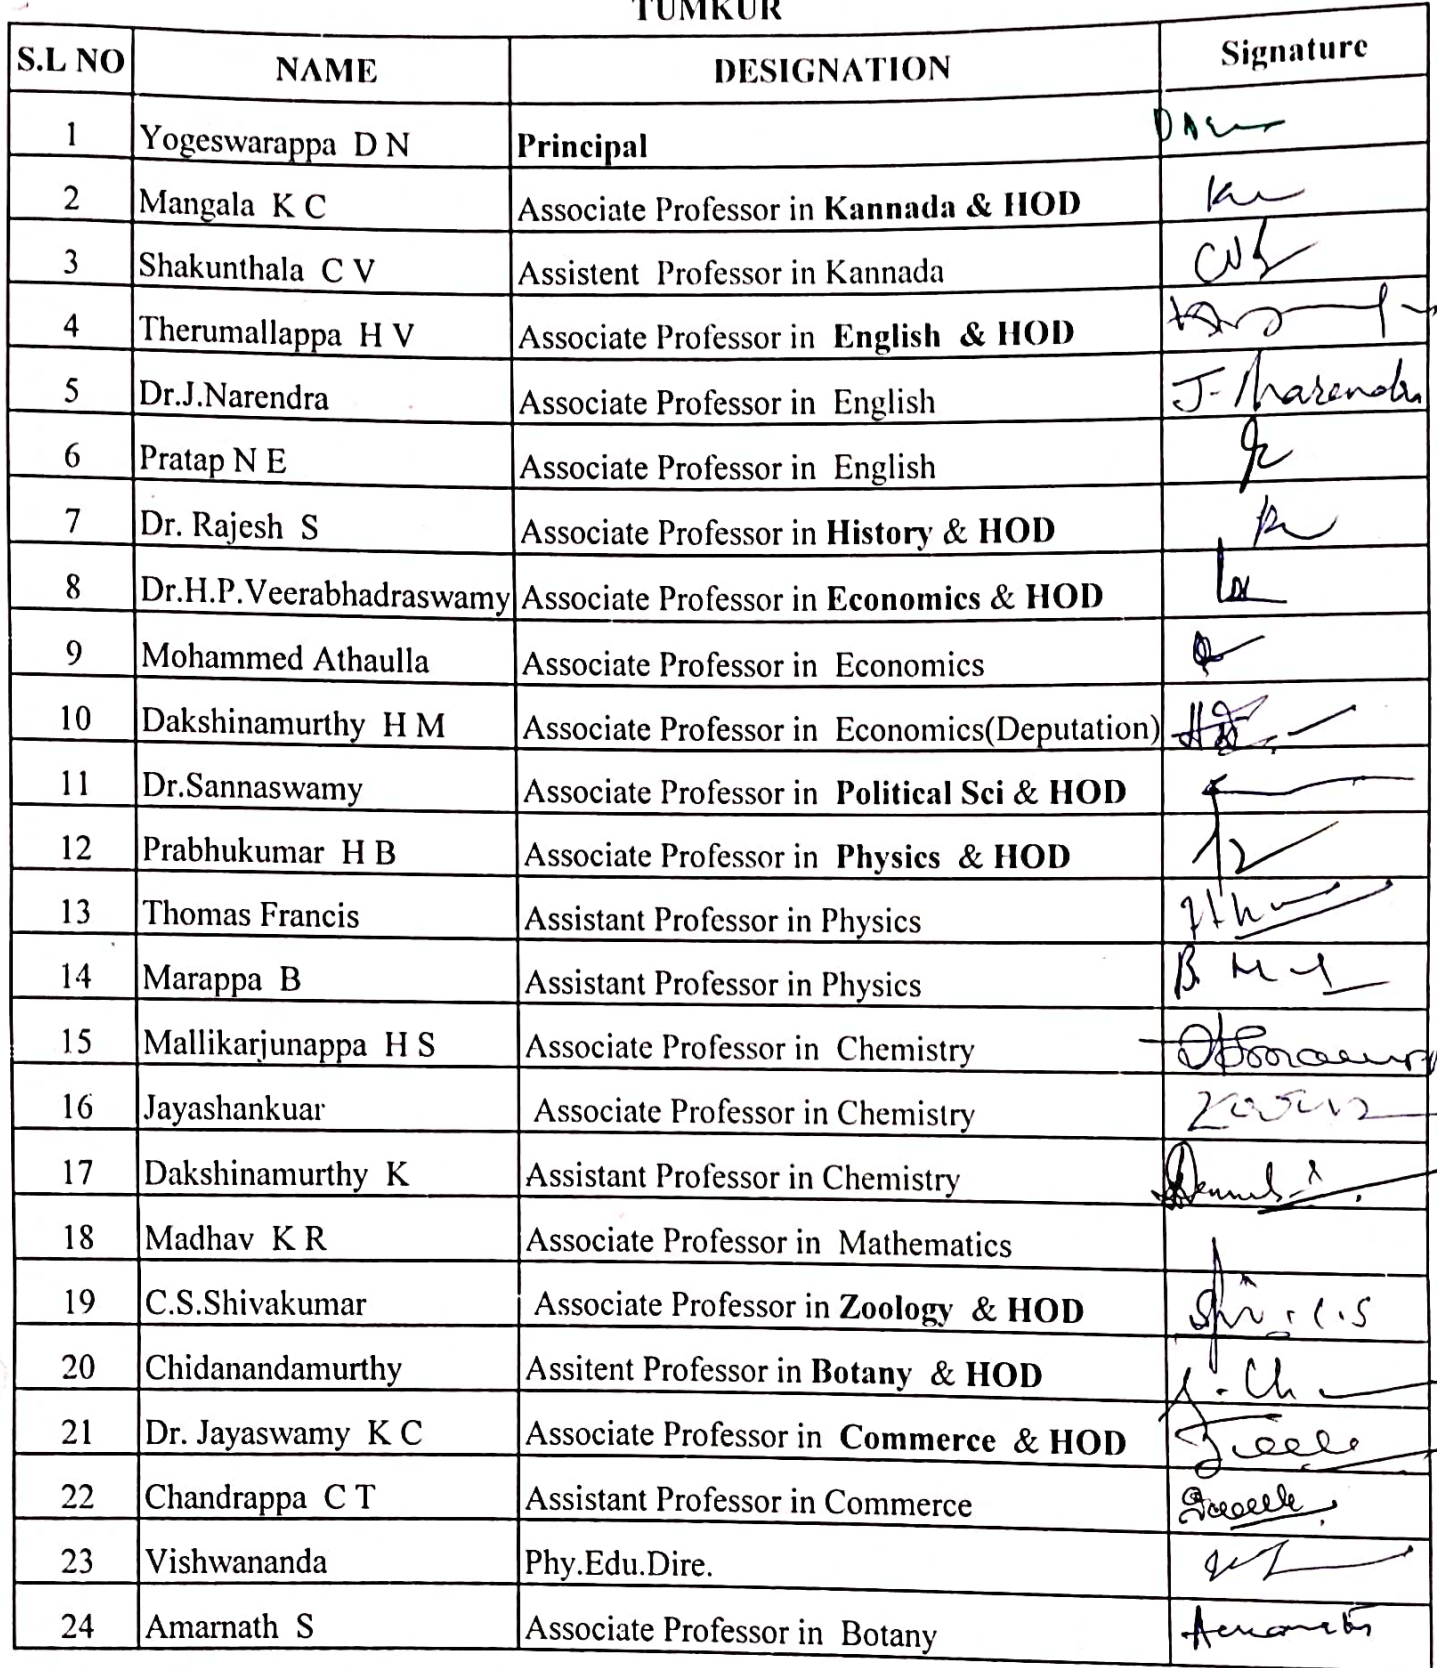 TUMKUR
S.L NO NAME DESIGNATION Signature
1 Yogeswarappa D N Principal
2 Mangala K C Associate Professor in Kannada & HOD
3 Shakunthala C V Assistent Professor in Kannada
4 Therumallappa H V Associate Professor in English & HOD
5 Dr.J.Narendra Associate Professor in English J. Narendra
6 Pratap N E Associate Professor in English
7 Dr. Rajesh S Associate Professor in History & HOD
8 Dr.H.P.Veerabhadraswamy Associate Professor in Economics & HOD
9 Mohammed Athaulla Associate Professor in Economics
10 Dakshinamurthy H M Associate Professor in Economics(Deputation)
11 Dr.Sannaswamy Associate Professor in Political Sci & HOD
12 Prabhukumar H B Associate Professor in Physics & HOD
13 Thomas Francis Assistant Professor in Physics
14 Marappa B Assistant Professor in Physics
15 Mallikarjunappa H S Associate Professor in Chemistry
16 Jayashankuar Associate Professor in Chemistry
17 Dakshinamurthy K Assistant Professor in Chemistry
18 Madhav K R Associate Professor in Mathematics
19 C.S.Shivakumar Associate Professor in Zoology & HOD
20 Chidanandamurthy Assitent Professor in Botany & HOD
21 Dr. Jayaswamy K C Associate Professor in Commerce & HOD
22 Chandrappa C T Assistant Professor in Commerce
23 Vishwananda Phy.Edu.Dire.
24 Amarnath S Associate Professor in Botany